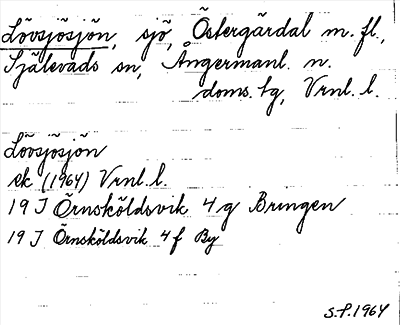 Lövsjösjön, sjö, Östergärdal m. fl.,
Själevads sn, Ångermanl. n.
doms. tg, Vrnl. l.
Lövsjösjön
ek (1964) Vrnl. l.
19 J Örnsköldsvik 4 g Bringen
19 J Örnsköldsvik 4 f By
S.P. 1964